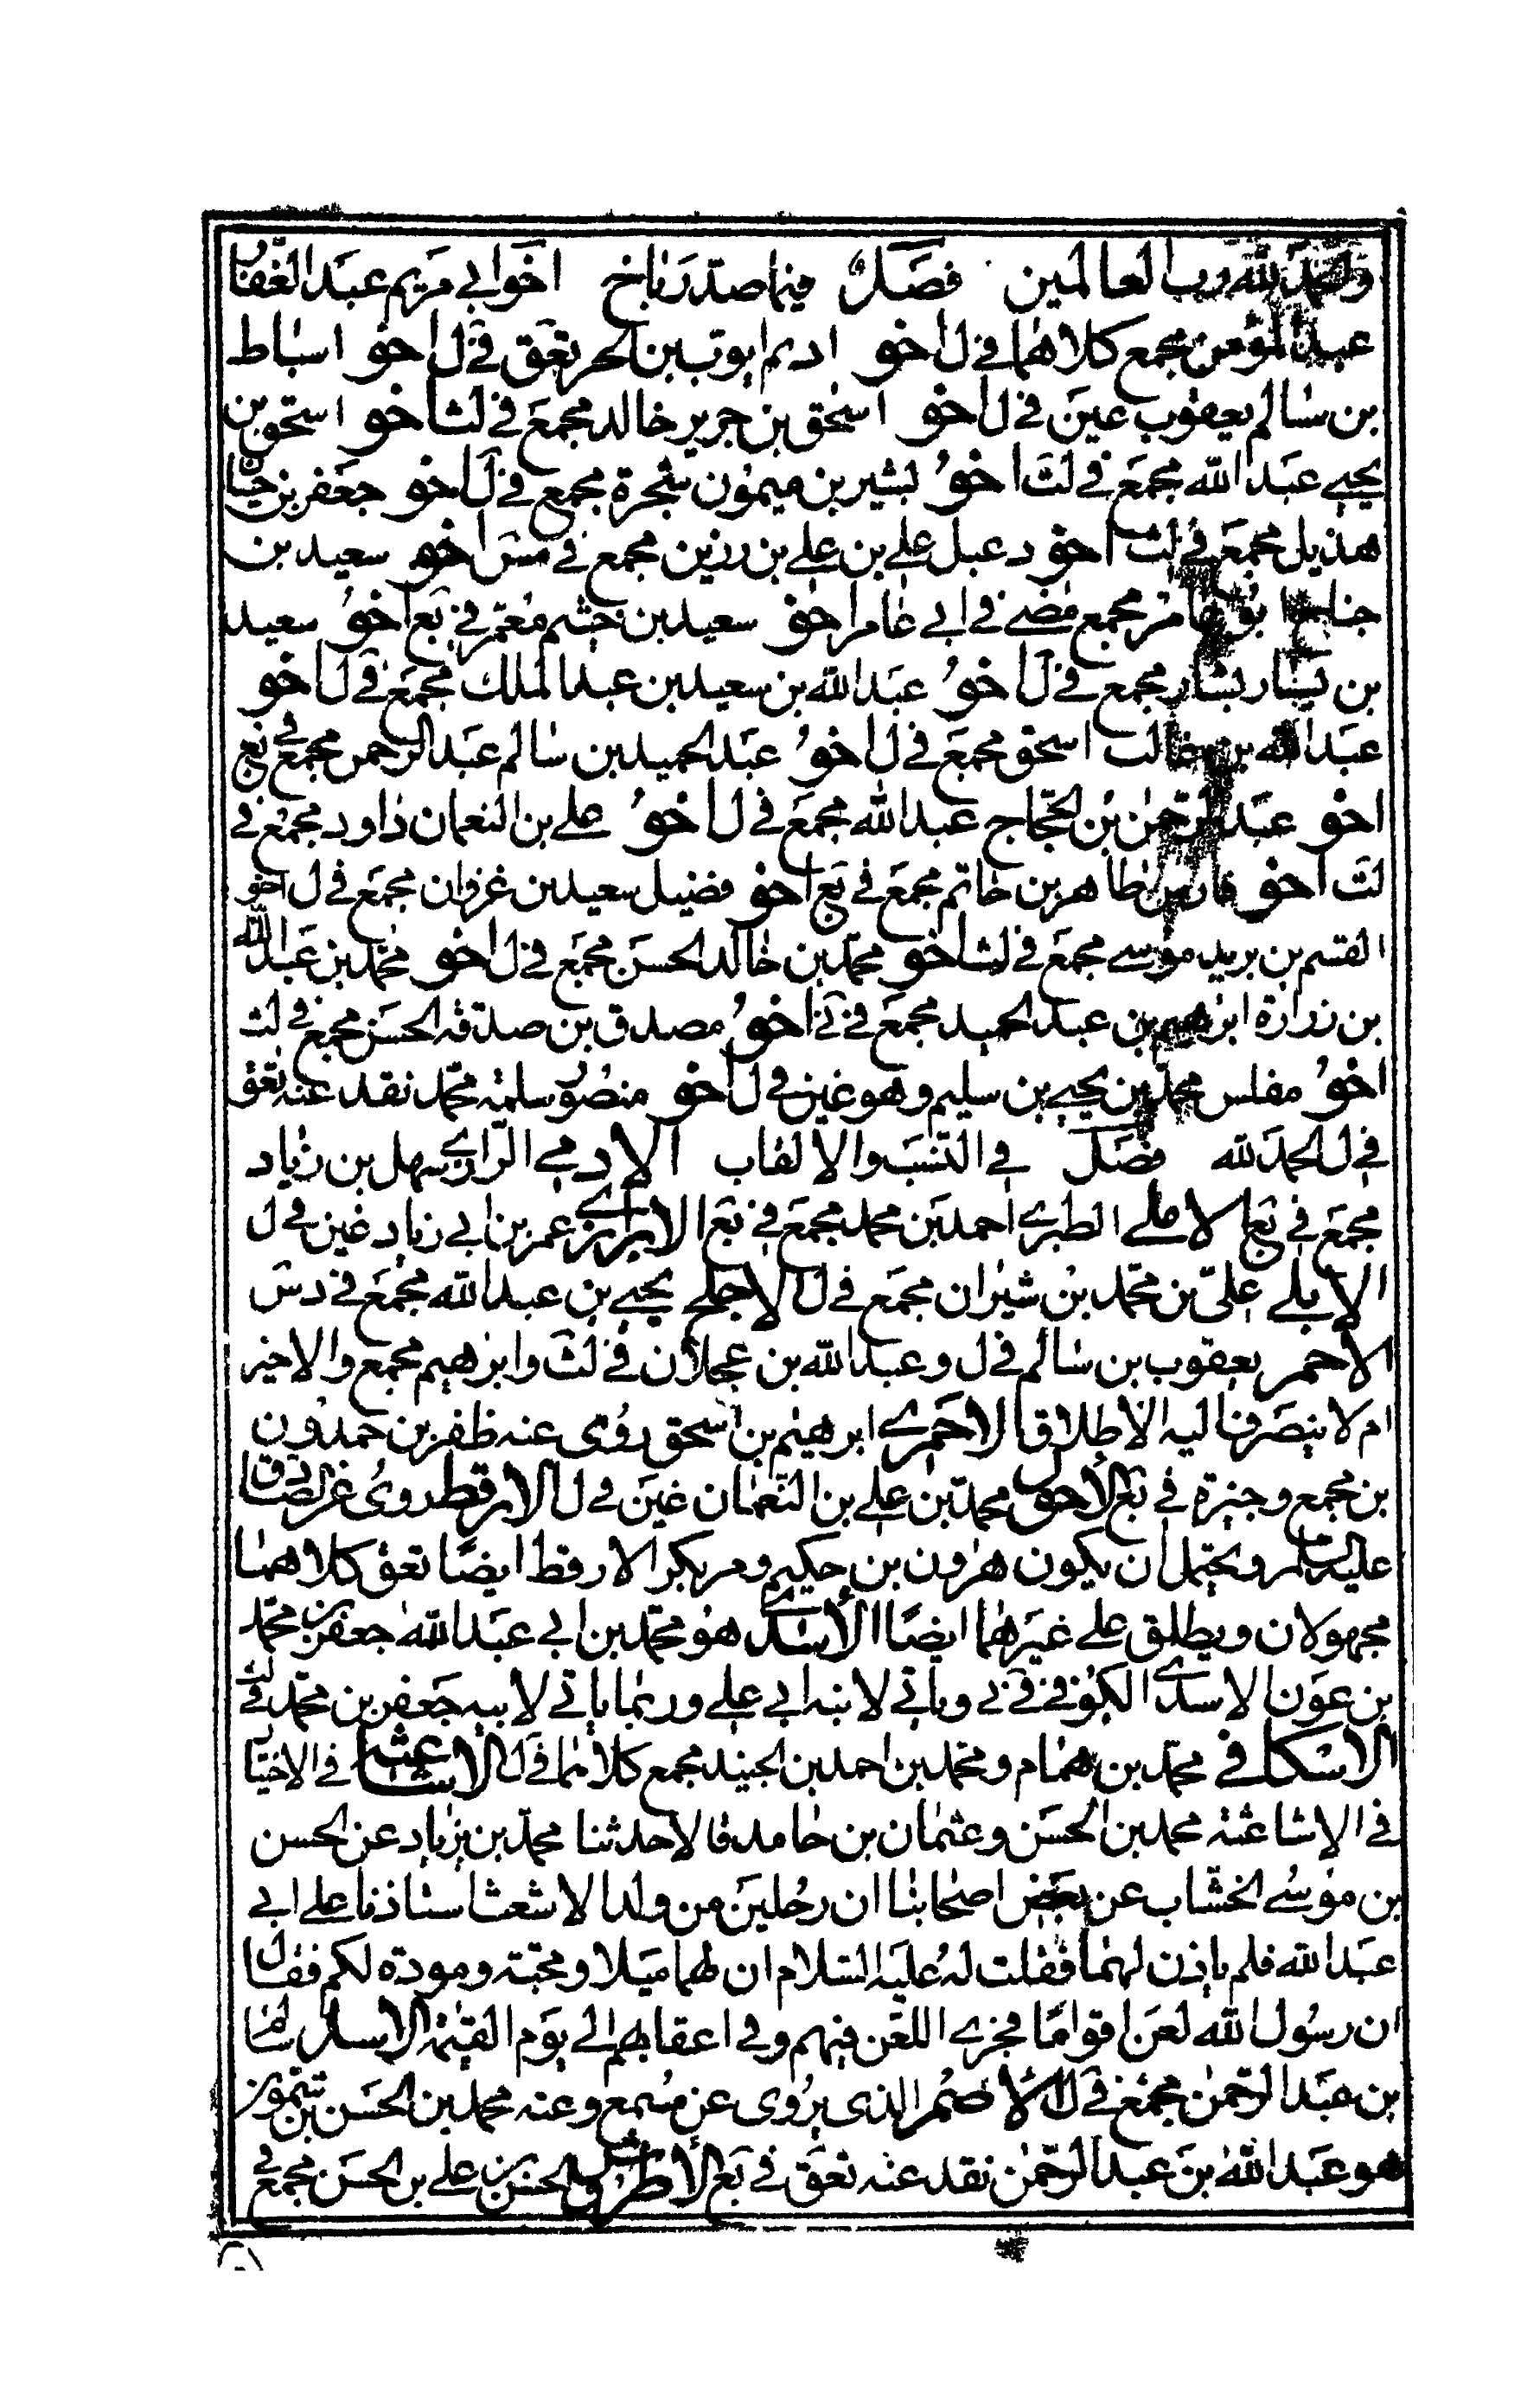 والحمد لله رب العالمين فصل فيما صدر باخ اخو ابي مريم عبد الغفار
عبد المؤمن مجمع كلاهما في ل اخو اديم ايوب بن الحر تعق في ل اخو اسباط
بن سالم يعقوب عين في ل اخو اسحق بن جرير خالد مجمع في لث اخو اسحق بن
يحيى عبد الله مجمع في لث اخو بشير بن ميمون شجرة مجمع في ل اخو جعفر بن حيان
هذيل مجمع في لث اخو دعبل علي بن علي بن رزين مجمع في مش اخو سعيد بن
جناح ابو عامر مجمع مضى في ابي عامر اخو سعيد بن خثيم معمر في بع اخو سعيد
بن يسار بشار مجمع في ل اخو عبد الله بن سعيد بن عبد الملك مجمع في ل اخو
عبد الله بن غالب اسحق مجمع في ل اخو عبد الحميد بن سالم عبد الرحمن مجمع في بع
اخو عبد الرحمن بن الحجاج عبد الله مجمع في ل اخو علي بن النعمان داود مجمع في
لث اخو فارس طاهر بن حاتم مجمع في بع اخو فضيل سعيد بن غزوان مجمع في ل اخو
القسم بن بريد موسى مجمع في لث اخو محمد بن خالد الحسن مجمع في ل اخو محمد بن عبد الله
بن زرارة ابرهيم بن عبد الحميد مجمع في اخو مصدق بن صدقة الحسن مجمع في لث
اخو مفلس محمد بن يحيى بن سليم وهو غين في ل اخو منصور سلمة محمد نقد عنه تعق
في ل الحمد لله فصل في النسب والالقاب الادمي الرازي سهل بن زياد
مجمع في بع الاملي الطبري احمد بن محمد مجمع في بع الابرازي عمر بن ابي زياد غين في ل
الابلي علي بن محمد بن شيران مجمع في ل الاجلح يحيى بن عبد الله مجمع في دس
الاحمر يعقوب بن سالم في ل وعبد الله بن عجلان في لث وابرهيم مجمع والاخير
ام لا ينصرف اليه الاطلاق الاحمري ابرهيم بن اسحق روى عنه ظفر بن حمدون
بن مجمع وخيرة في بع الاحول محمد بن علي بن النعمان غين في ل الارقط روى عن الصادق
عليه السلام ويحتمل ان يكون هرون بن حكيم ومر بكر الارقط ايضا تعق كلاهما
مجهولان ويطلق على غيرهما ايضا الأسدي هو محمد بن ابي عبد الله جعفر بن محمد
بن عون الاسدي الكوفي في وياتي لابنه ابي علي وربما ياتي لابيه جعفر بن محمد في لث
الاسكافي محمد بن همام ومحمد بن احمد بن الجنيد مجمع كلاهما في ل الاشاعثة في الاختيار
في الاشاعثة محمد بن الحسن وعثمان بن حامد قالا حدثنا محمد بن يزداد عن الحسن
بن موسى الخشاب عن بعض اصحابنا ان رجلين من ولد الاشعث استاذنا على ابي
عبد الله فلم ياذن لهما فقلت له عليه السلام ان لهما ميلا ومحبة ومودة لكم فقال
ان رسول الله لعن اقواما فجرى اللعن فيهم وفي اعقابهم الى يوم القيمة الاسل سالم
بن عبد الرحمن مجمع في ل الأصم الذي يروى عن مسمع وعنه محمد بن الحسن بن شمون
هو عبد الله بن عبد الرحمن نقد عنه تعق في بع الأطروش الحسن بن علي بن الحسن مجمع في